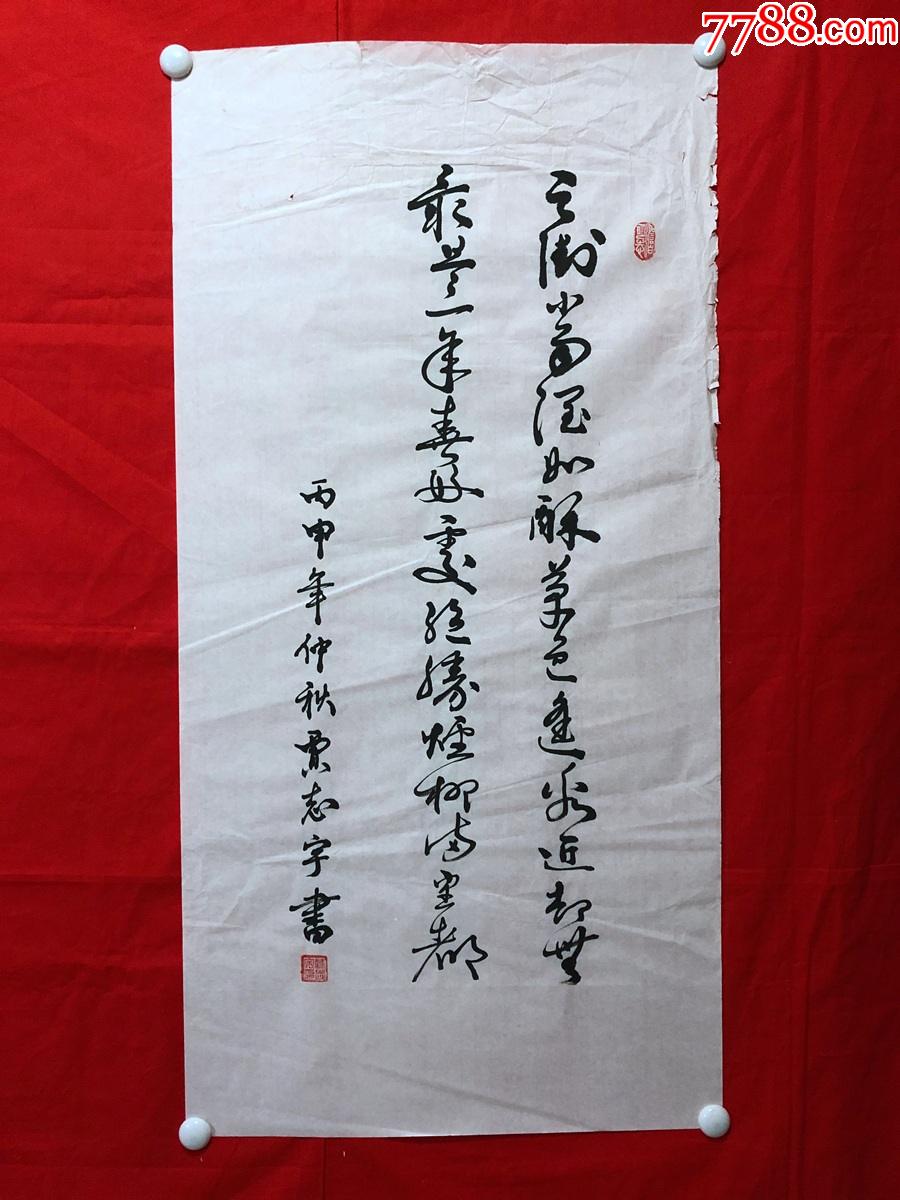 7788.com
天街小雨润如酥草色遥看近却無
最是一年春好處絶勝煙柳满皇都
丙申年仲秋栗志宇書